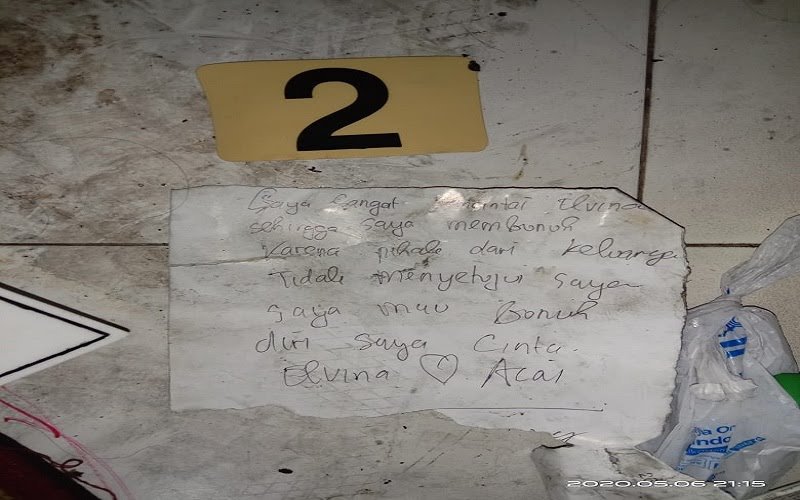 2
Saya sangat mencintai Elvina
sehingga saya membunuh
Karena pihak dari keluarga
Tidak menyetujui saya
saya mau Bunuh
diri saya Cinta.
Elvina ♡ Acai
2020.05.06 21:15